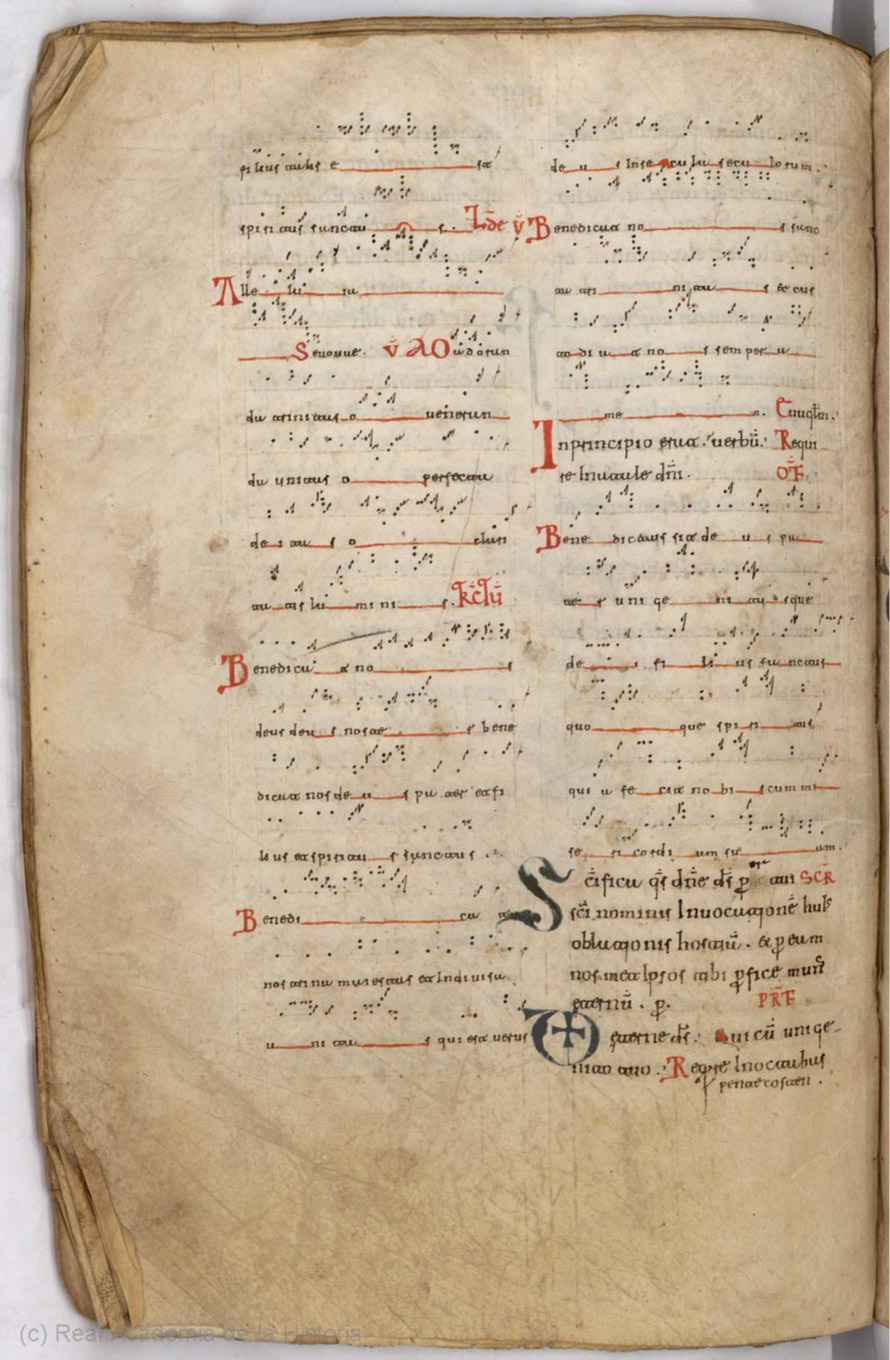 filius talis e st
spiritus sanctu s. V
Alle lu ia
Seuouae. V O adoran
da trinitas o veneran
da unitas o perfecta
dei ta s o clari
ta tis lu mi ni s.
Benedica t no s
deus deu s noste r bene
dicat nos de u s pa ter et fi
lius et spiritu s sanctus
Benedi ca t
nos trina maiestas et indivisa
u ni ta s qui est verus
de u s in se cu la secu lorum.
Benedicat no s sanc
ta tri ni ta s et cus
to di a t no s semper a
me n.
In principio erat verbū. Requi
re in natale dn̄i. OF̄
Bene dictus sit de u s pa
te r uni ge ni tu s que
de i fi li us sanctus
quo que spi ri tus
qui a fe cit no bi scum mi
se ri cordi am su am.
Sc̄ifica qs̄ dn̄e ds̄ p tui SCR̄
sc̄i nominis Invocatione huius
oblationis hostiā. et p eum
nos met Ipsos tibi pfice mun
eternū. p. PRF̄
eterne ds̄. Qui cū unige
nito tuo. Reqre In octabus
pentecosten.
(c) Real Academia de la Historia